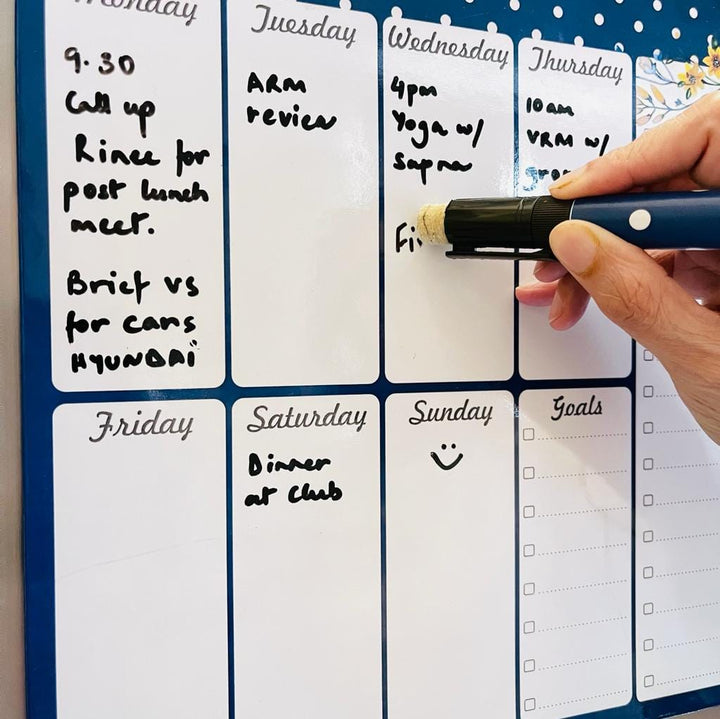 Monday
9.30
Call up
Rinee for
post lunch
meet.
Brief vs
for cars
HYUNDAi
Tuesday
ARM
review
Wednesday
4pm
Yoga w/
Sapna
Fi
Thursday
10am
VRM w/
Friday
Saturday
Dinner
at Club
Sunday
Goals